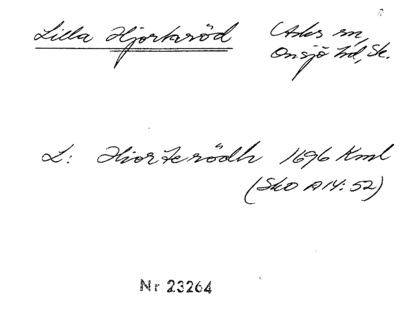 Lilla Hjortaröd Ask sn,
Onsjö hd, Sk.
L: Hiorterödh 1696 Kml
(Sk0 A14: 52)
Nr 23264